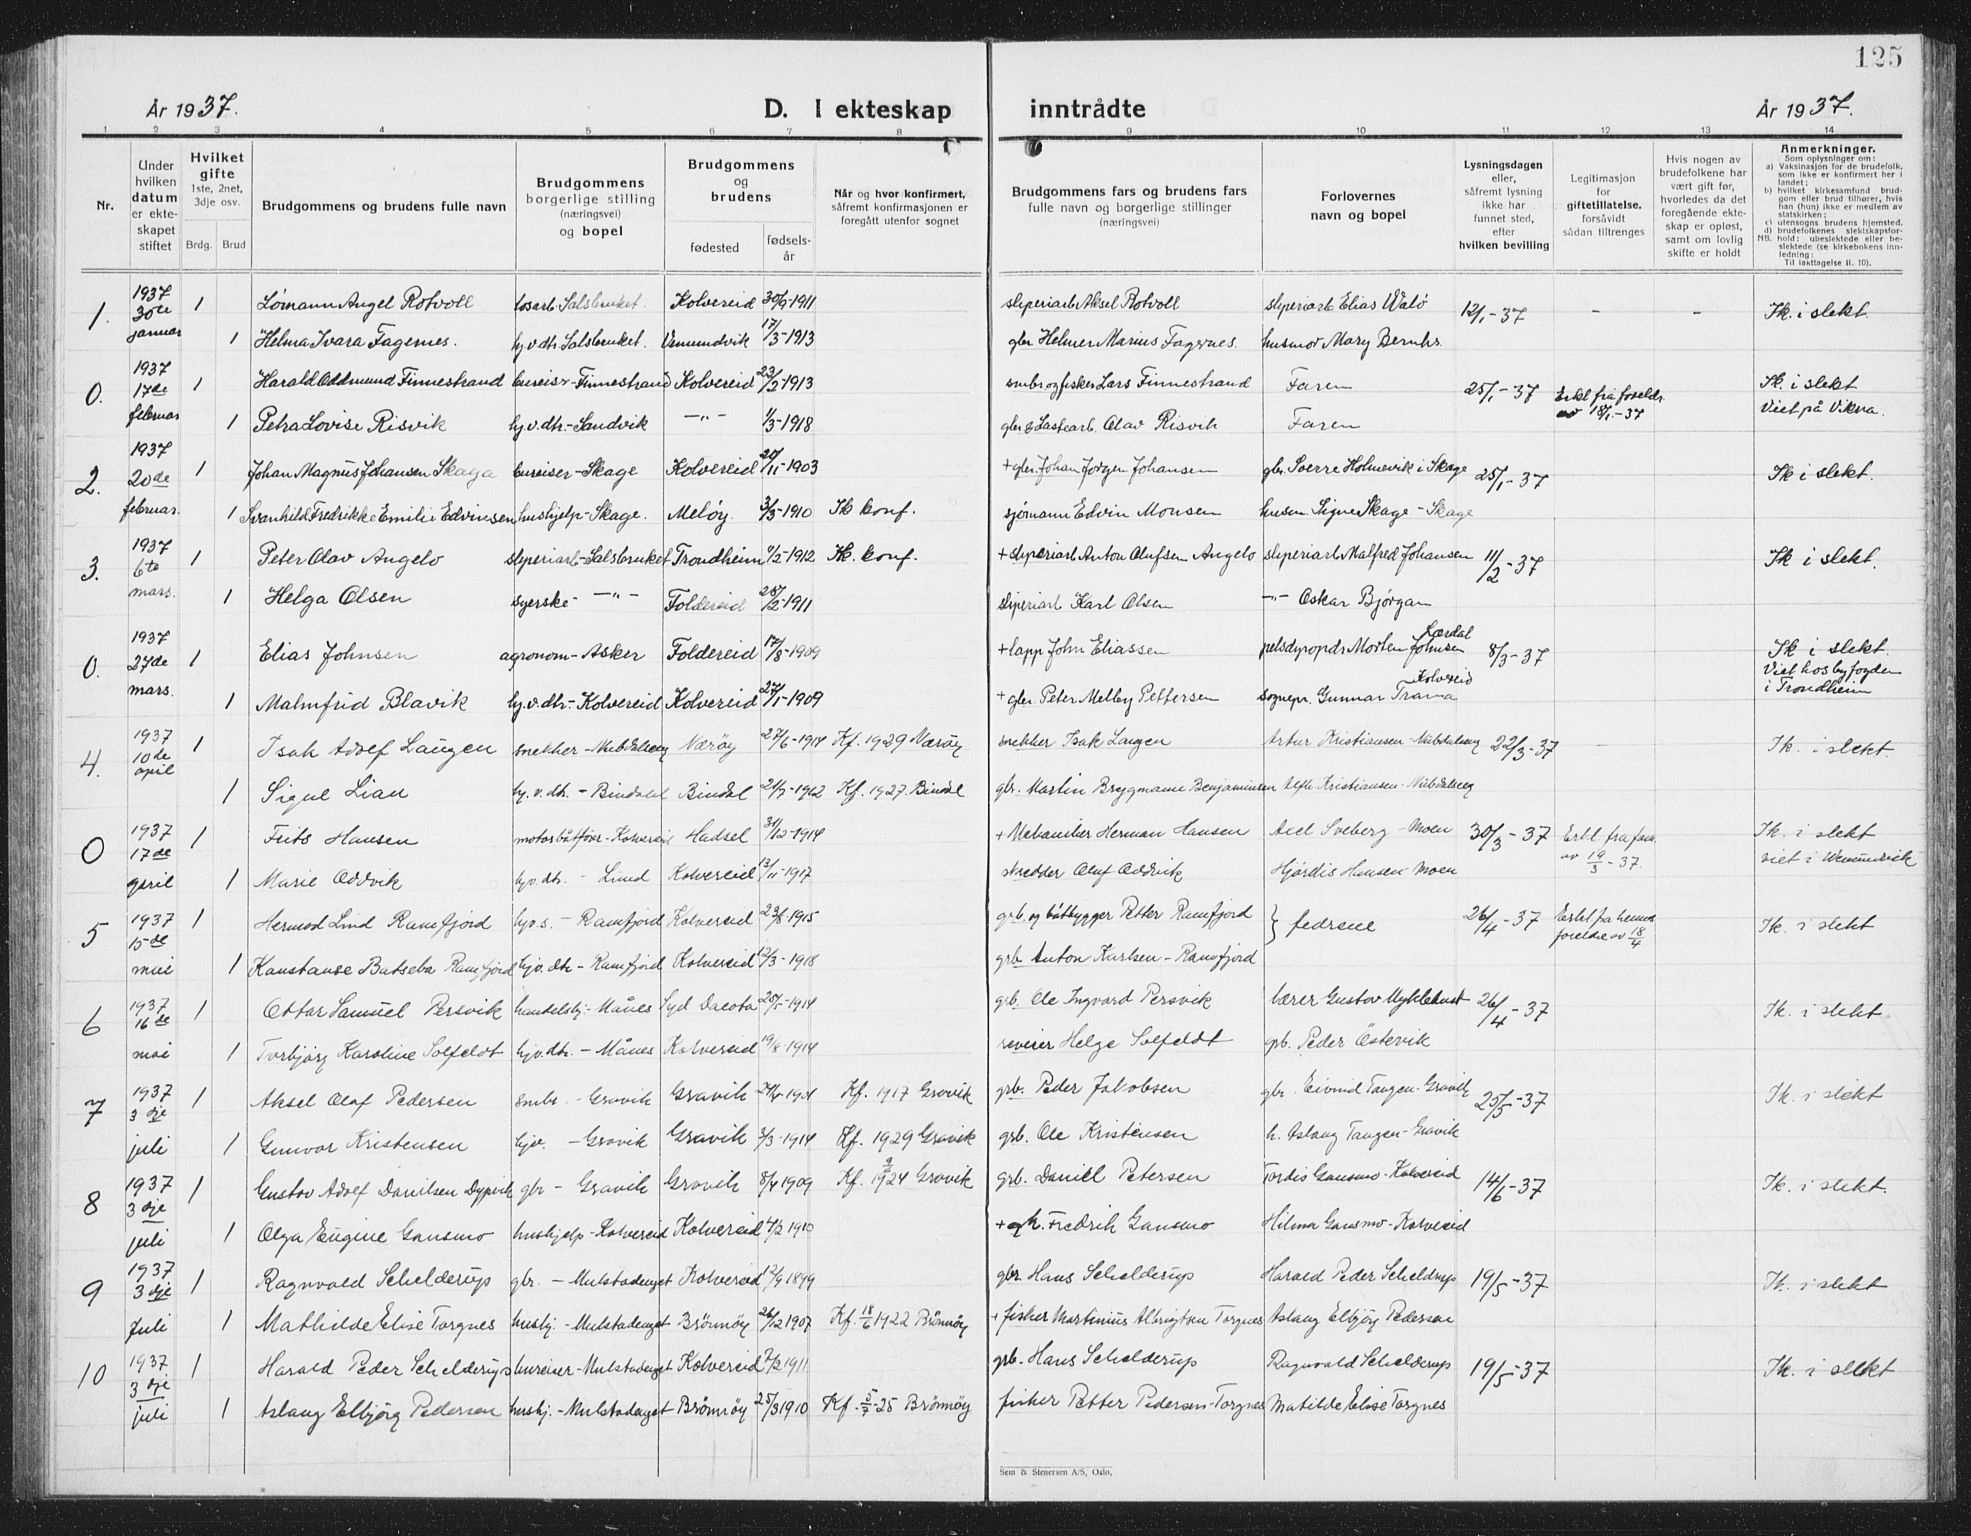 125
År 1937.
D. I ekteskap inntrådte
År 1937.
1 2 3 4 5 6 7 8 9 10 11 12 13 14
Nr.
Under hvilken datum er ekteskapet stiftet
Hvilket gifte 1ste, 2net, 3dje osv.
Brdg. Brud
Brudgommens og brudens fulle navn
Brudgommens borgerlige stilling (næringsvei) og bopel
Brudgommens og brudens
fødested
fødselsår
Når og hvor konfirmert, såfremt konfirmasjonen er foregått utenfor sognet
Brudgommens fars og brudens fars fulle navn og borgerlige stillinger (næringsvei)
Forlovernes navn og bopel
Lysningsdagen eller, såfremt lysning ikke har funnet sted, efter hvilken bevilling
Legitimasjon for giftetillatelse, forsåvidt sådan tiltrenges
Hvis nogen av brudefolkene har vært gift før, hvorledes da det foregående ekteskap er opløst, samt om lovlig skifte er holdt
Anmerkninger.
Som oplysninger om:
a) Vaksinasjon for de brudefolk, som ikke er konfirmert her i landet;
b) hvilket kirkesamfund brudgom eller brud tilhører, hvis han (hun) ikke er medlem av statskirken;
c) utensogns brudens hjemsted.
d) brudefolkenes slektskapsforhold: ubeslektede eller beslektede (se kirkebokens innledning:
NB.
Til iakttagelse II. 10).
1. 1937 30te januar 1 Lømann Angel Rotvoll Salsbruket. Kolvereid 30/9-1911 sliperiarb Aksel Rotvoll sliperiarb Elias Walø 12/1-37 - - Ik. i slekt.
1 Helma Ivara Fagernes. hj.v.dtr. Salsbruket. Vemundvik 17/3-1913 gbr Helmer Marius Fagernes. husmor Mary Bernhs.
0. 1937 17de februar 1 Harald Oddmund Finnestrand bureiser-Finnestrand Kolvereid 23/2-1913 smbr og fisker Lars Finnestrand Faren 25/1-37 Erkl fra foreldr. av 18/1-37 Ik. i slekt Viet på Vikna.
1 Petra Lovise Risvik hj.v.dtr.-Sandvik -"- 1/3-1918 Olav Risvik Faren
2. 1937 20de februar. 1 Johan Magnus Johansen Skaga bureiser-Skage Kolvereid 20/11-1903 + gbr. Johan Jørgen Johansen gbr. Sverre Holmevik i Skage 25/1-37 Ik i slekt.
1 Svanhild Fredrikke Emilie Edvinsen hushjelp-Skage. Meløy. 3/3-1910 Ik konf. sjømann Edvin Monsen husm. Signe Skage-Skage
3. 1937 6te mars. 1 Peter Olav Angelo sliperiarb-Salsbruket Trondheim 9/2-1912 Ik. konf. + sliperiarb Anton Olufsen Angelo sliperiarb Malfred Johansen 11/2-37 Ik i slekt.
1 Helga Olsen syerske -"- Foldereid 28/2-1911 sliperiarb Karl Olsen -"- Oskar Bjørgan
0. 1937 27de mars. 1 Elias Johnsen agronom-Asker Foldereid 17/8-1909 + lapp John Eliassen pelsdyropdr Morten Johnsen Lærdal 8/3-37 Ik i slekt. Viet hos byfogden i Trondheim
1 Malmfrid Blavik hj.v.dtr-Kolvereid Kolvereid 27/1-1909 + gbr. Peter Melby Pettersen sognepr. Gunnar Trana Kolvereid
4. 1937 10de april 1 Isak Adolf Laugen snekker-Nubdalseng Nærøy 27/6-1914 Kf. 1929 Nærøy snekker Isak Laugen Artur Kristiansen-Nubdalseng 22/3-37 Ik. i slekt.
1 Signe Lian hj.v.dtr.-Bindal Bindal 21/7-1912 Kf. 1927. Bindal gbr. Martin Brygmanne Benjaminsen Alfh. Kristiansen-Nubdalseng
0 1937 17de april 1 Frits Hansen motorbåtfører-Kolvereid Hadsel 31/12-1914 + Mekaniker Herman Hansen Axel Sveberg-Moen 30/3-37 Erkl. fra far. av 19/3-37. Ik. i slekt viet i Vemundvik
1 Marie Oddvik hjv.dtr.-Lund Kolvereid 13/11-1917 skredder Oluf Oddvik Hjördis Hansen-Moen
5 1937 15de mai 1 Hermod Lind Ramfjord hjv.s.-Ramfjord Kolvereid 23/8-1915 grb. og båtbygger Petter Ramfjord } fedrene 26/4-37 Erkl. fra hennes foreldre av 18/4 Ik. i slekt
1 Konstanse Batseba Ramfjord hjv.dtr-Ramfjord Kolvereid 12/3-1918 grb. Anton Karlsen-Ramfjord
6 1937 16de mai 1 Ottar Samuel Persvik handelsbj.-Månes Syd Dacota 25/5-1914 grb. Ole Ingvard Persvik lærer Gustav Myklebust 26/4-37 Ik. i slekt.
1 Torbjørg Karoline Solfeldt hjv.dtr.-Månes Kolvereid 19/8-1914 Helge Solfeldt gb. Peder Östevik
7 1937 3dje juli 1 Aksel Olaf Pedersen smbr.-Gravik Gravik 24/4-1901 Kf. 1917 Gravik grb. Peder Jakobsen gbr. Eivind Tangen-Gravik 25/5-37 Ik. i slekt
1 Gunvor Kristensen hjv.-Gravik Gravik 3/3-1914 Kf. 1929 Gravik grb. Ole Kristensen h. Aslaug Tangen-Gravik
8 1937 3dje juli 1 Gustav Adolf Danilsen Dypvik gbr-Gravik Gravik 8/4 1909 Kf. 1924 Gravik grb. Daniel Petersen Tordis Gansmo-Kolvereid 14/6-37 Ik. i slekt.
1 Olga Eugine Gansmo hushjelp-Kolvereid Kolvereid 4/2 1910 + gb. Fredrik Gansmo Hilma Gansmo-Kolvereid
9 1937 3dje Juli 1 Ragnvald Schelderup gbr.-Mulstadaget Kolvereid 12/9 1899 gbr. Hans Schelderup Harald Peder Schelderup 19/5-37 Ik. i slekt
1 Mathilde Elise Torgnes hushj.-Mulstadaget Brønnøy 26/12 1907 Kf. 18/6 1922 Brönnöy + fisker Martinius Albrigtsen Torgnes Aslaug Elbjörg Pedersen
10 1937 3dje juli 1 Harald Peder Schelderup bureiser-Mulstadaget Kolvereid 7/2 1911 grb. Hans Schelderup Ragnvald Schelderup 19/5-37 Ik. i slekt
1 Aslaug Elbjörg Pedersen hushj.-Mulstadaget Brønnøy 25/3 1910 Kf. 5/7-25 Brönnöy fisker Petter Pedersen-Torgnes Matilde Elise Torgnes
Sem & Stenersen A/S, Oslo.